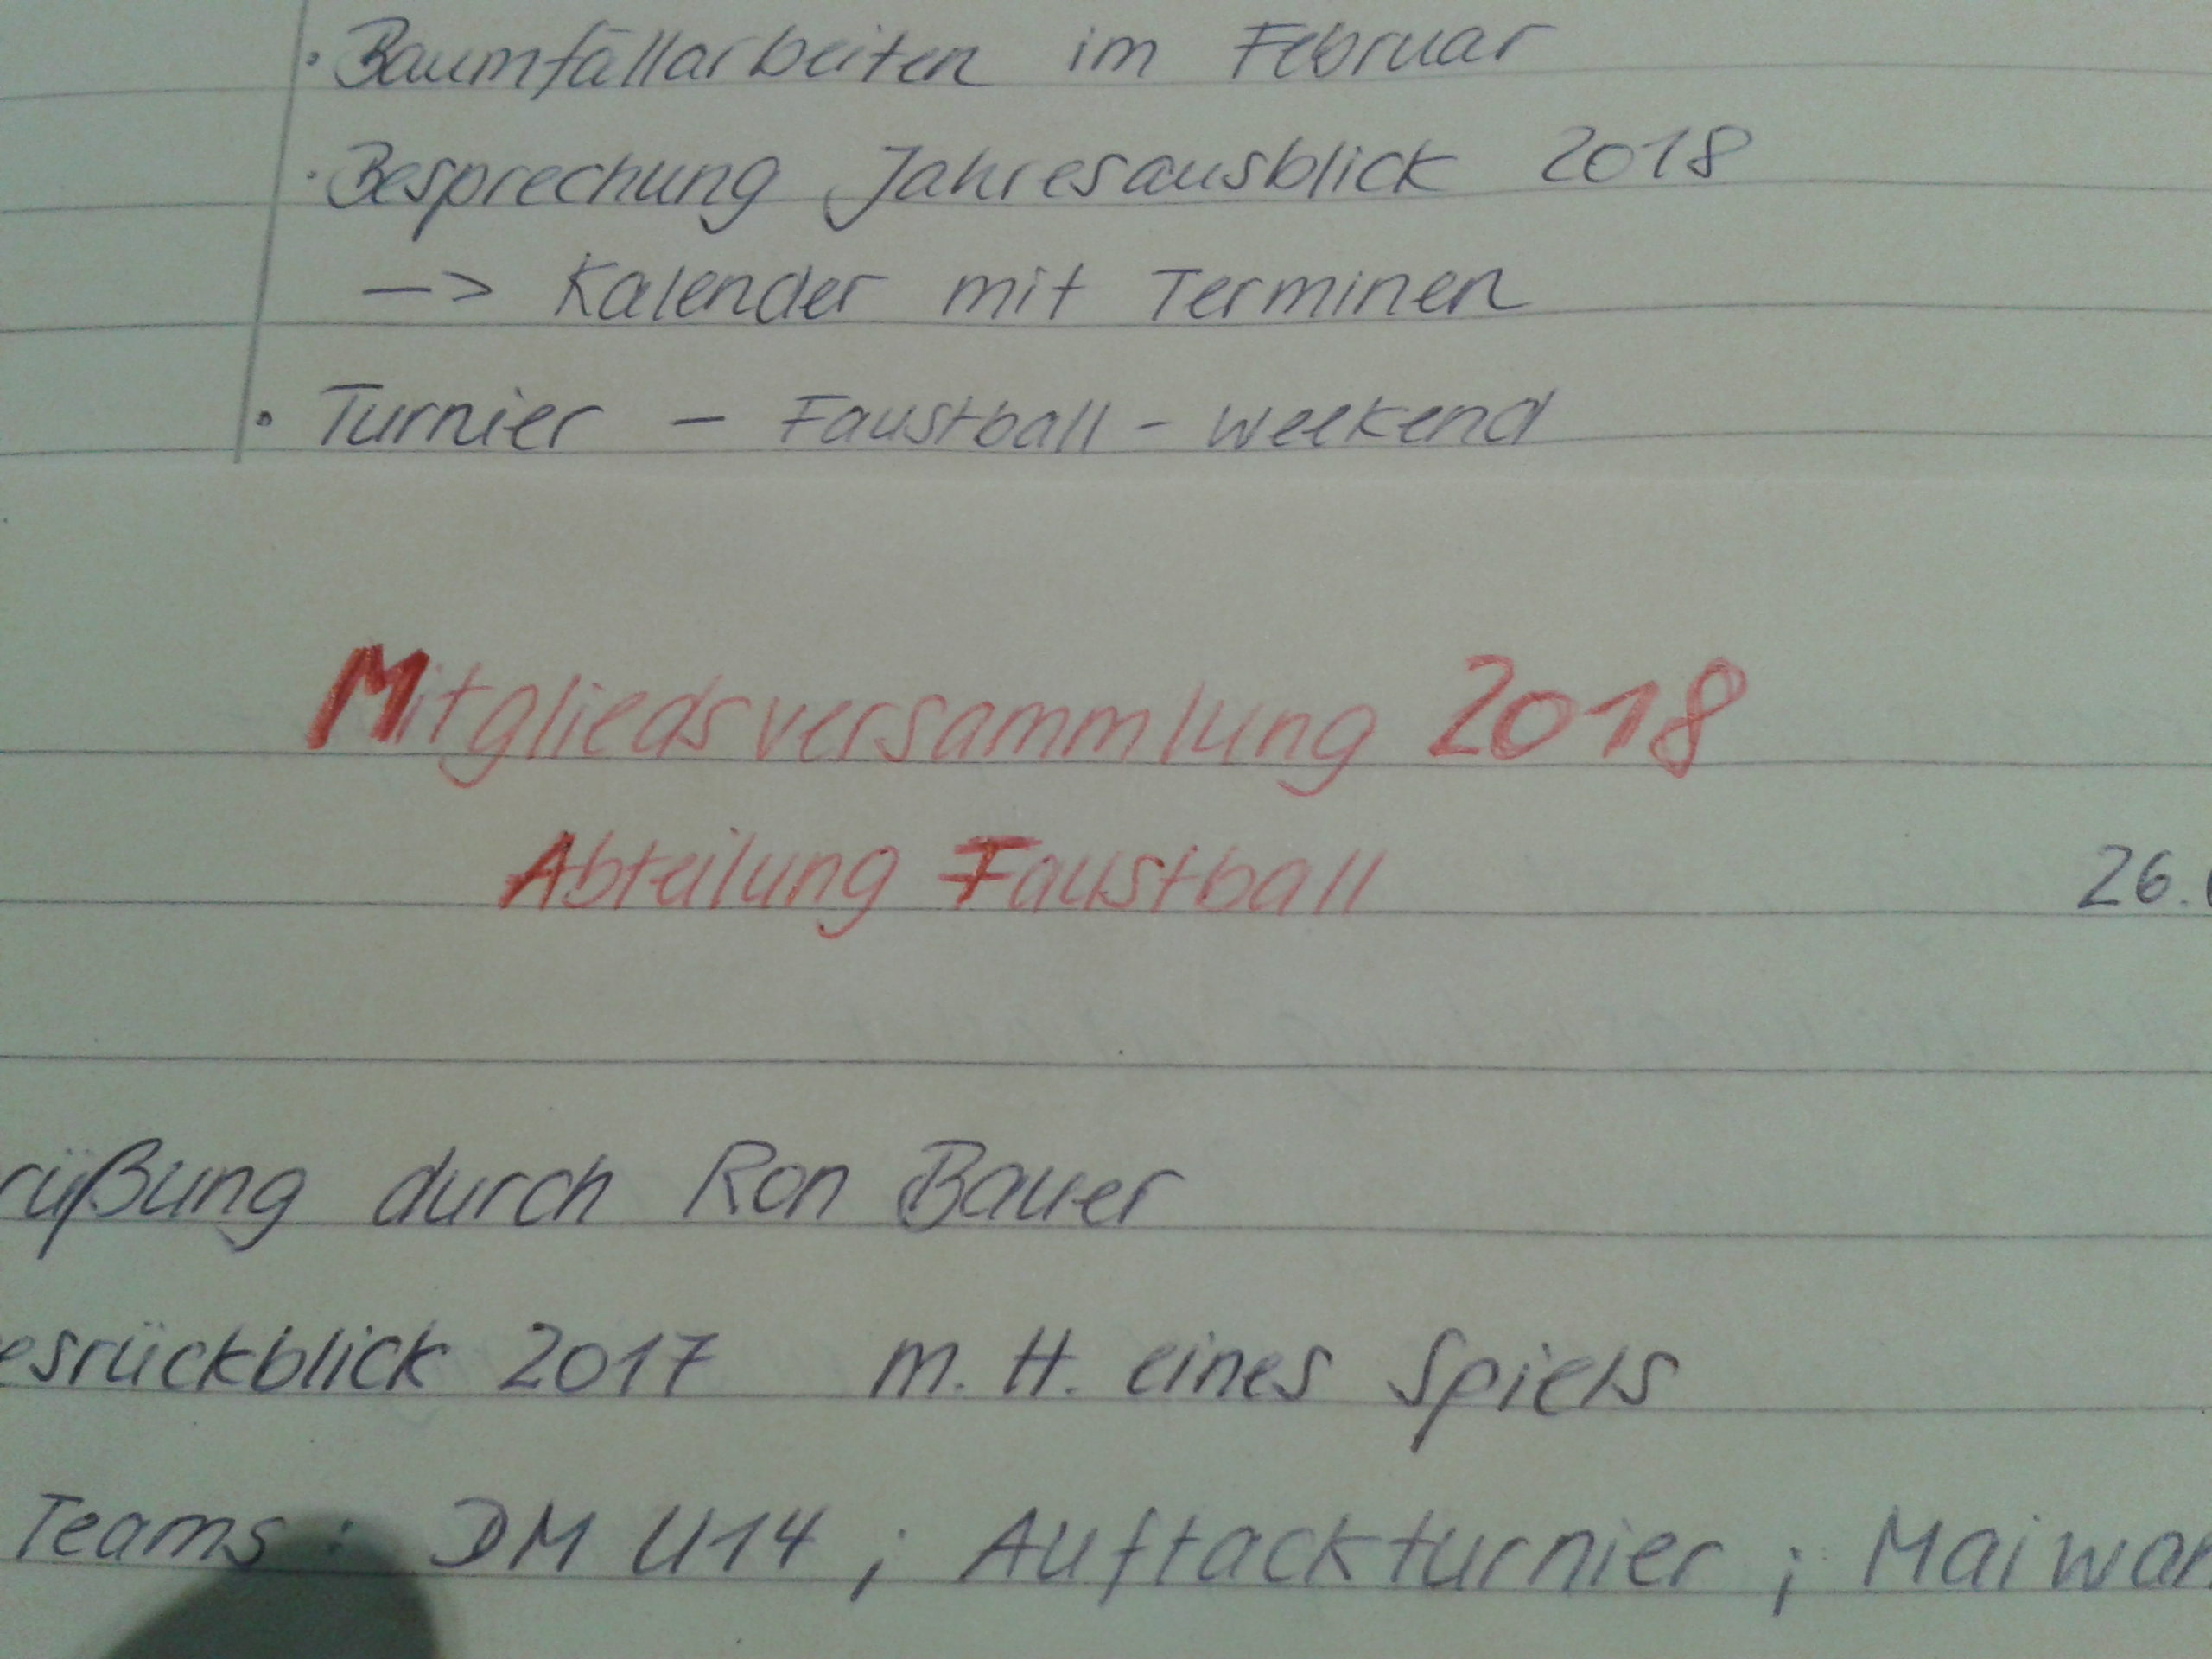 · Baumfällarbeiten im Februar
· Besprechung Jahresausblick 2018
–> Kalender mit Terminen
· Turnier – Faustball - Weekend
Mitgliedsversammlung 2018
Abteilung Faustball
26.
rüßung durch Ron Bauer
esrückblick 2017 m. H. eines Spiels
Teams: DM U14 ; Auftackturnier ; Maiwan